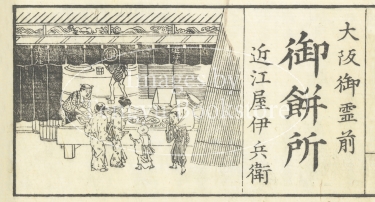 大阪御霊前
御餅所
近江屋伊兵衛